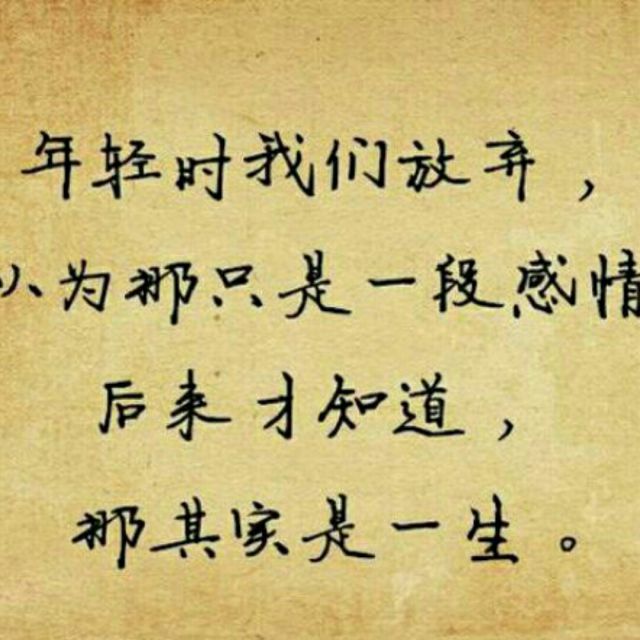 年轻时我们放弃，
以为那只是一段感情
后来才知道，
那其家是一生。